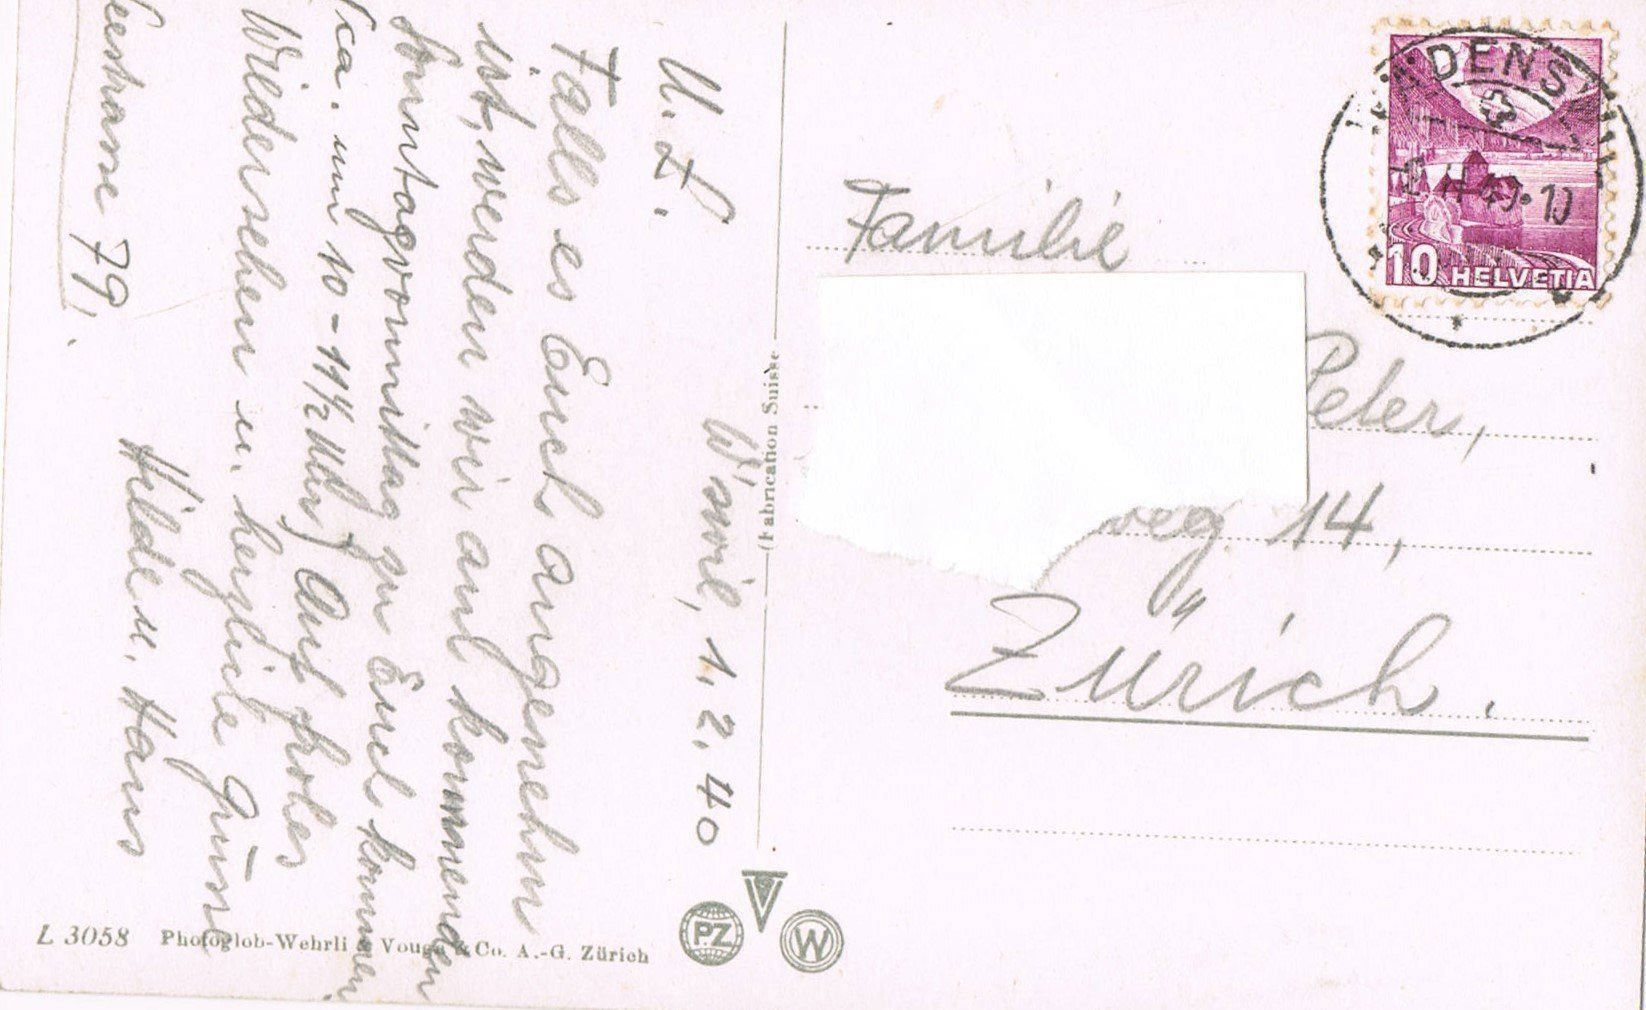 W'swil, 1. 2. 40
U. L.
Falls es Euch angenehm
ist, werden wir am kommenden
Sonntagvormittag zu Euch kommen
(ca. um 10 - 11½ Uhr) Auf frohes
Wiedersehen u. herzliche Grüsse
Hilde u. Hans
Seestrasse 79.
(Fabrication Suisse
L 3058 Photoglob-Wehrli & Vouga & Co. A.-G. Zürich
PZ
V
W
10 HELVETIA
40·10
Familie
Peter,
weg 14,
Zürich.